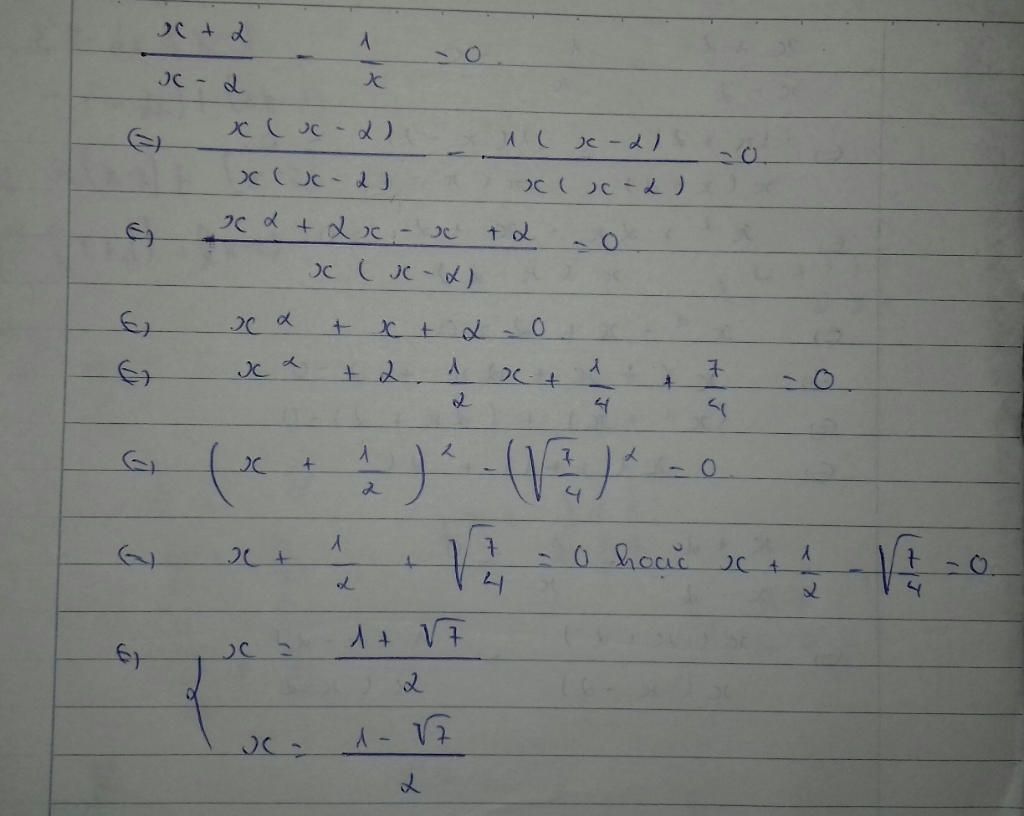 \frac{x + 2}{x - 2} - \frac{1}{x} = 0.
(=) \frac{x ( x - 2 )}{x ( x - 2 )} - \frac{1 ( x - 2 )}{x ( x - 2 )} = 0.
(=) \frac{x^2 + 2x - x + 2}{x ( x - 2 )} = 0
(=) x^2 + x + 2 = 0.
(=) x^2 + 2 . \frac{1}{2} x + \frac{1}{4} + \frac{7}{4} = 0.
(=) ( x + \frac{1}{2} )^2 - ( \sqrt{\frac{7}{4}} )^2 = 0.
(=) x + \frac{1}{2} + \sqrt{\frac{7}{4}} = 0 hoặc x + \frac{1}{2} - \sqrt{\frac{7}{4}} = 0.
(=) { x = \frac{1 + \sqrt{7}}{2}
x = \frac{1 - \sqrt{7}}{2}